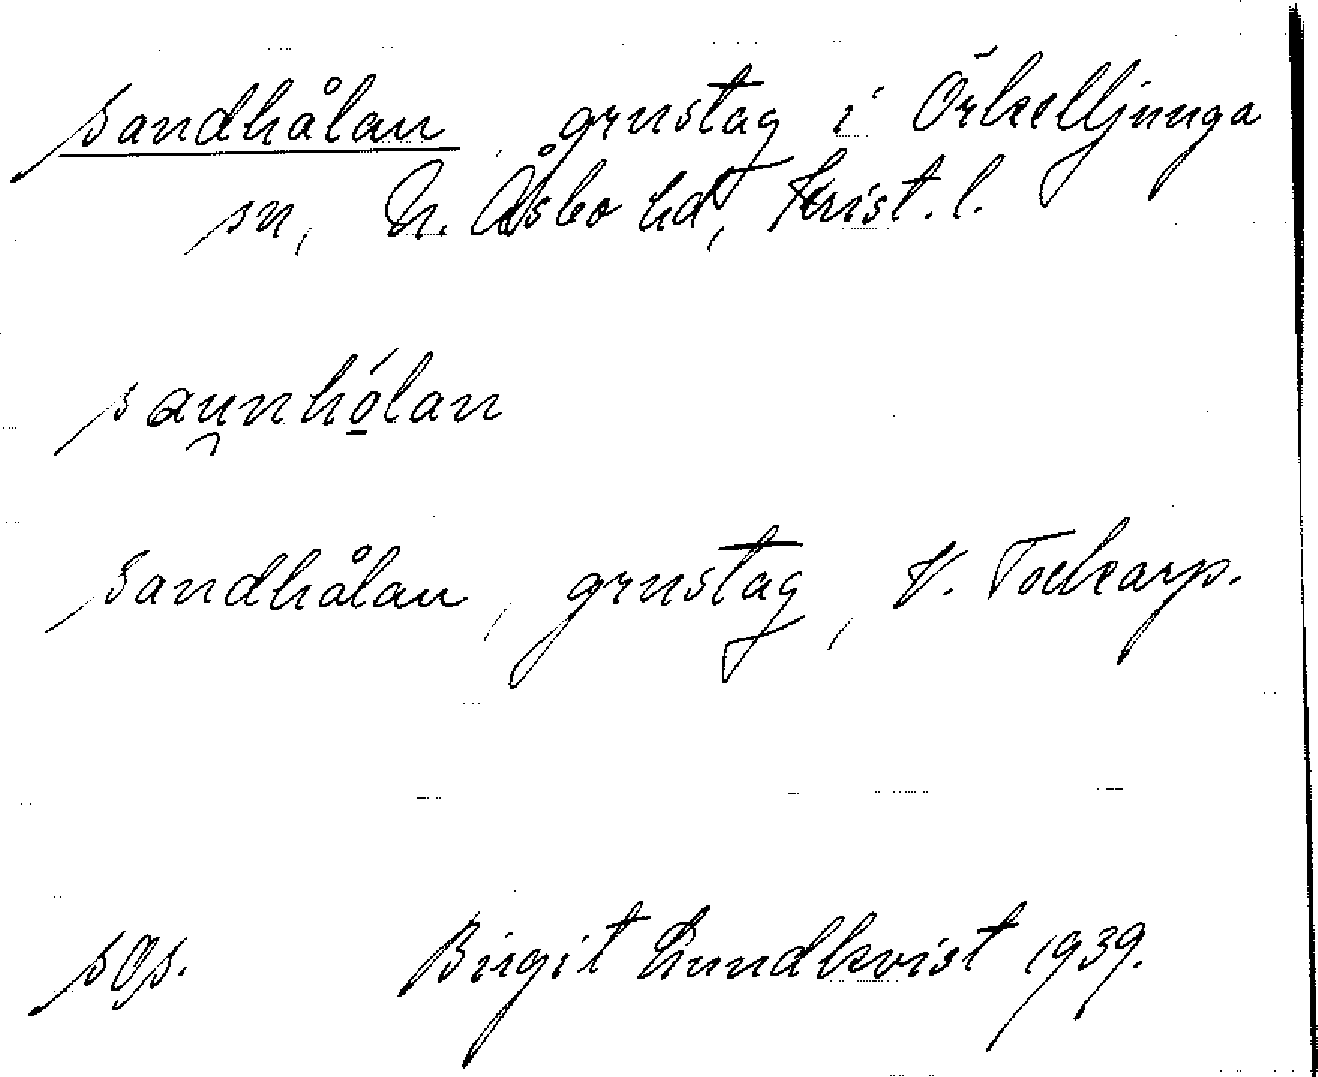 Sandhålan, grustag i Örkelljunga
sn, N. Åsbo hd, Krist. l.
saunhólan
Sandhålan, grustag, V. Tockarp.
sgs. Birgit Lundkvist 1939.